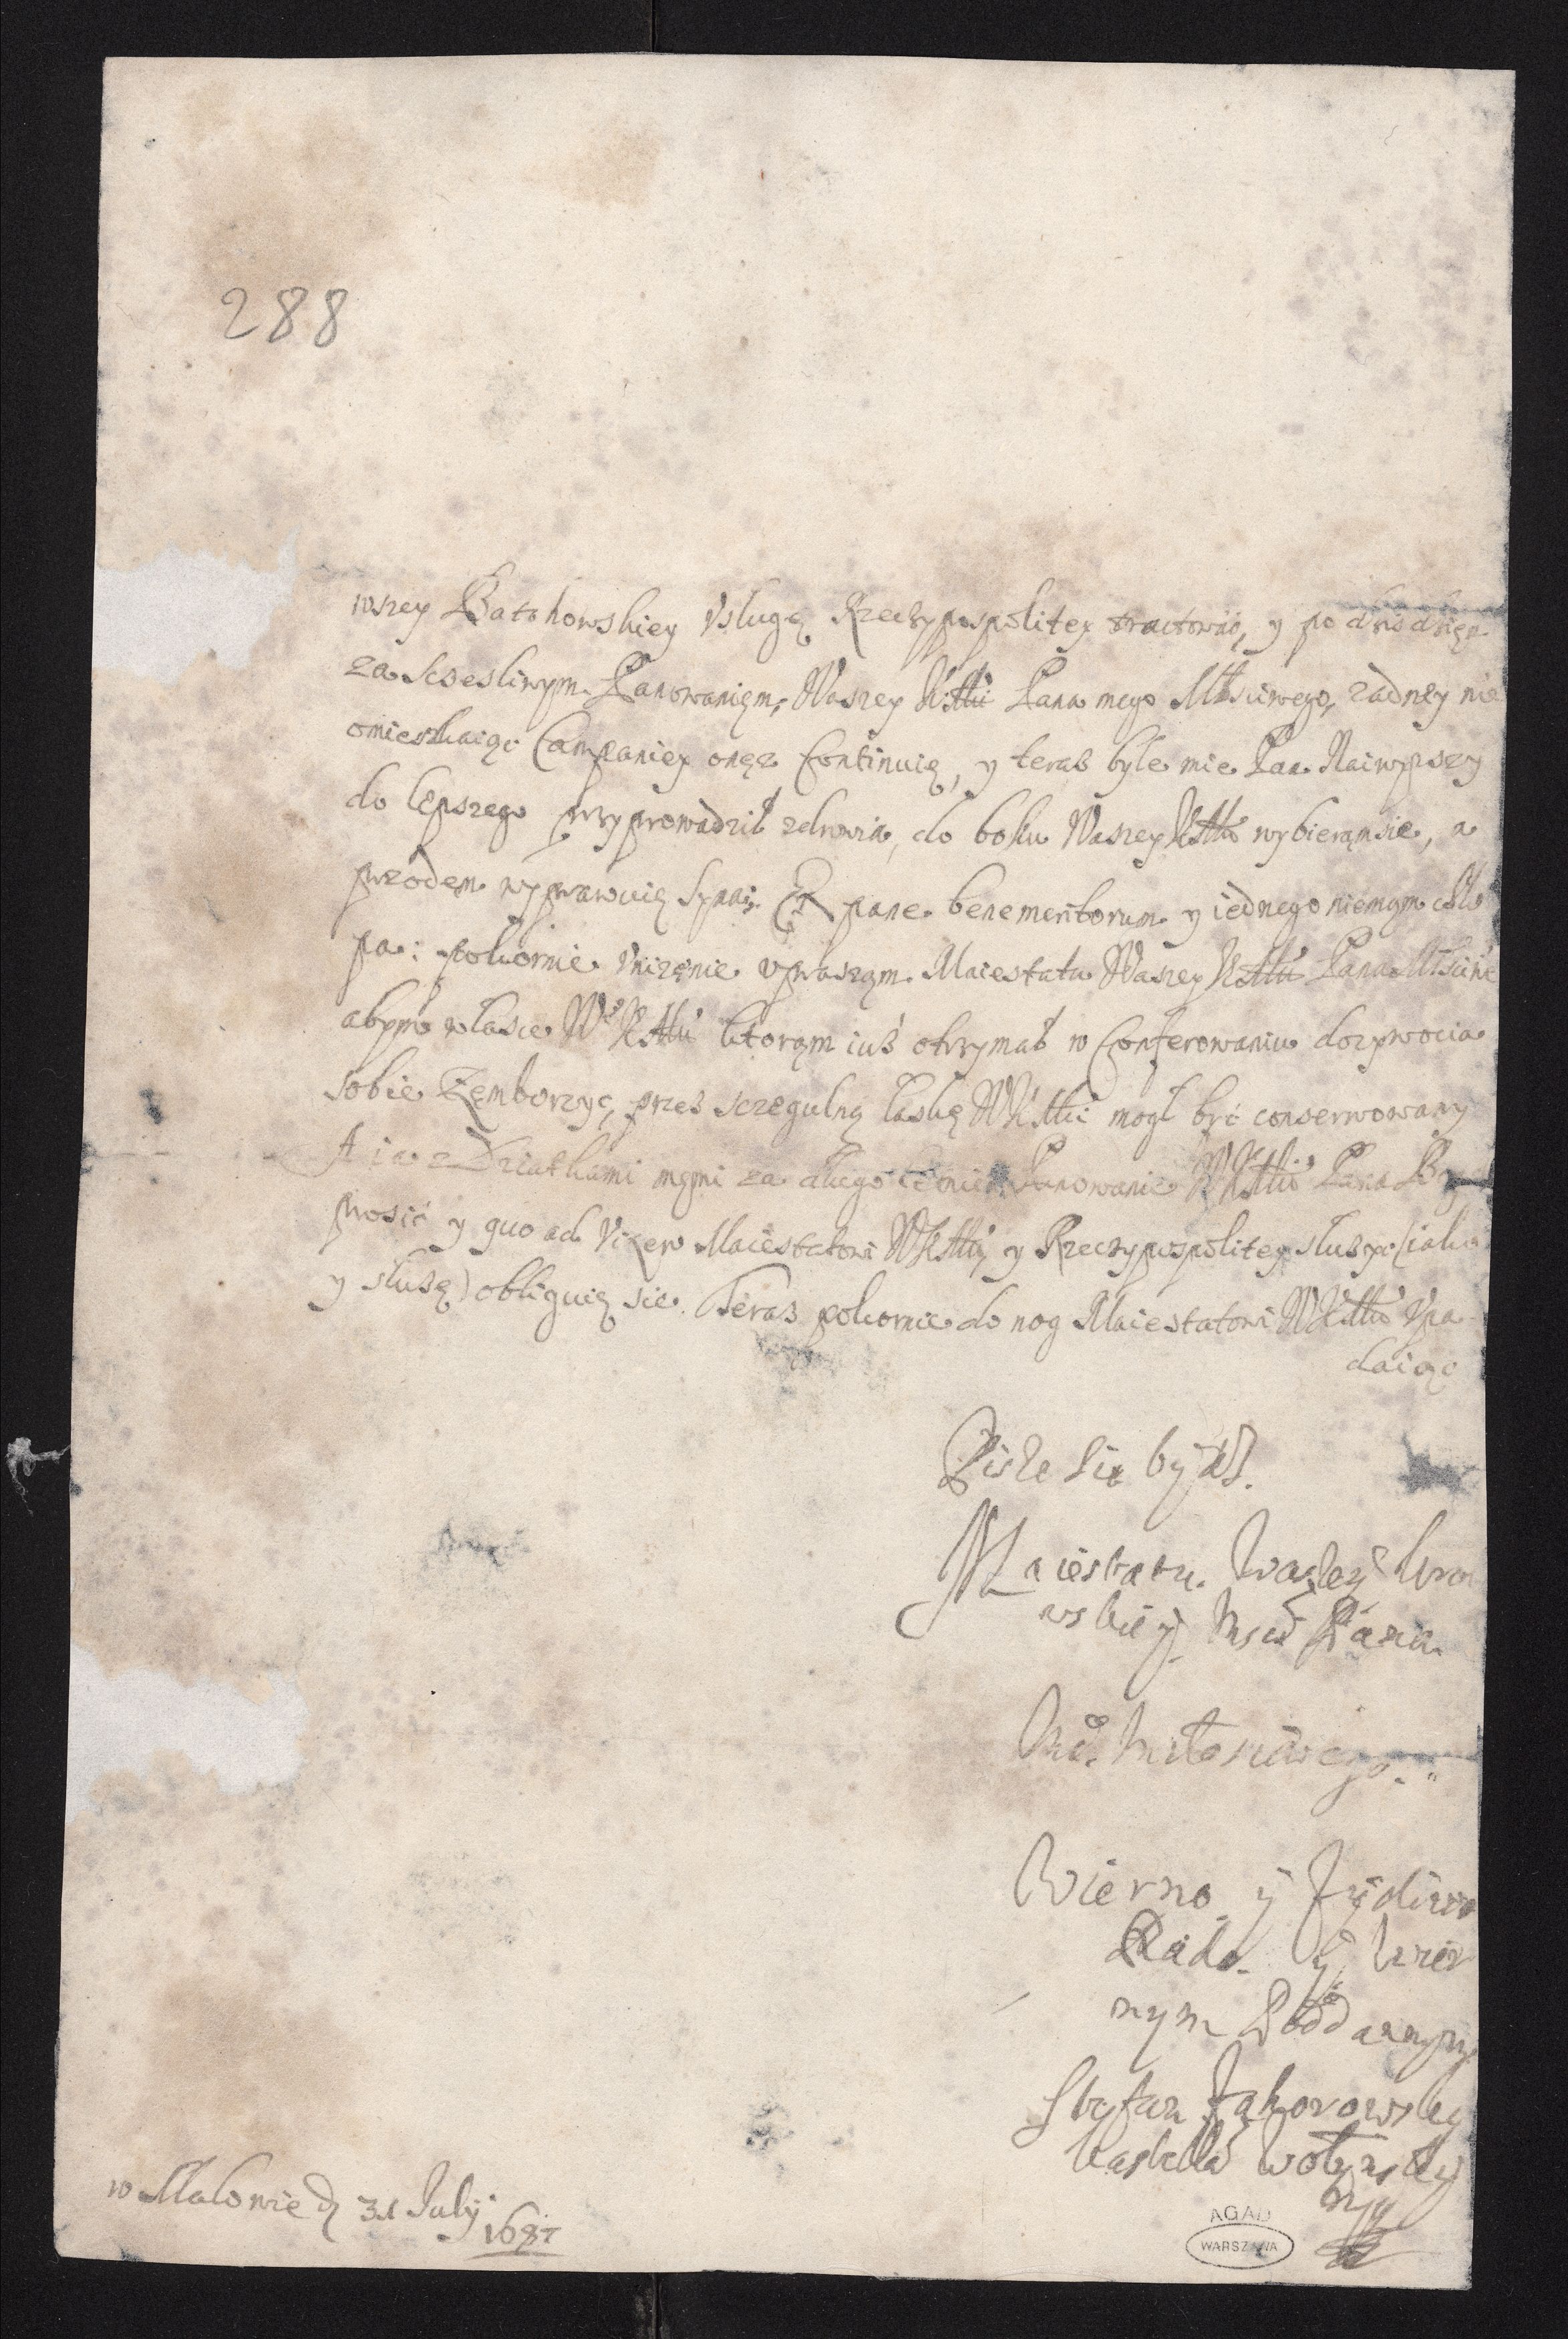 288
wszey Batohowskiey Usługę Rzeczypospolitey tractować, y po dziś dzięn
za Sczesliwym Panowanięm, Waszey KMci Pana mego Młsciwego, zadney nie
omieszkaiąc Campaniey onęż Continuię, y teras byle mie Pan Naiwyszy
do lepszego przyprowadził zdrowia, do boku Waszey KMci wybieramsie, a
przodem wyprawuię Syna; pane benemeritorum y iednego niemym chło
pa: pokornie Unizęnie upraszam Maiestatu Waszey KMci Pana Młsciwe
abym w łasce W KMci ktorąm iuż otrzymał w Conferowaniu dozywocia
sobie Zemborzyc, przes sczegulną łaskę WKMci mogł być conserwowany
A ia z Dziatkami mymi za długoletnie Panowanie WKMci Pana B
prosić y quo ad vixero Maiestatowi WKMci y Rzeczypospolitey słuzyc (iako
y służę) obliguię sie. Teras pokornie do nog Maiestatowi WKMci Upa
daiąc
Pisze się bydź.
Maiestatu Waszey Kro
wskiey Msci Pana
Miłosciwego
Wierną y Życliwą
Radą y wier
nym Poddanym
Stefan
Kastella Wołynsky
mp
w Makowie d 31 July
1687
AGAD
WARSZAWA